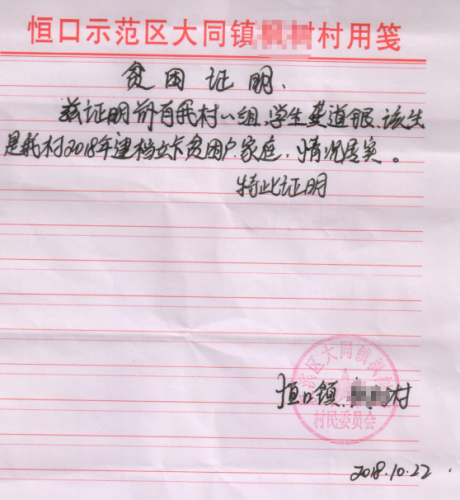 恒口示范区大同镇村用笺
贫困证明.
兹证明我村八组.学生龚道银.该生
是我村2018年建档立卡贫困户家庭,情况属实。
特此证明
区大同镇
村民委员会
恒口镇.村
2018.10.22